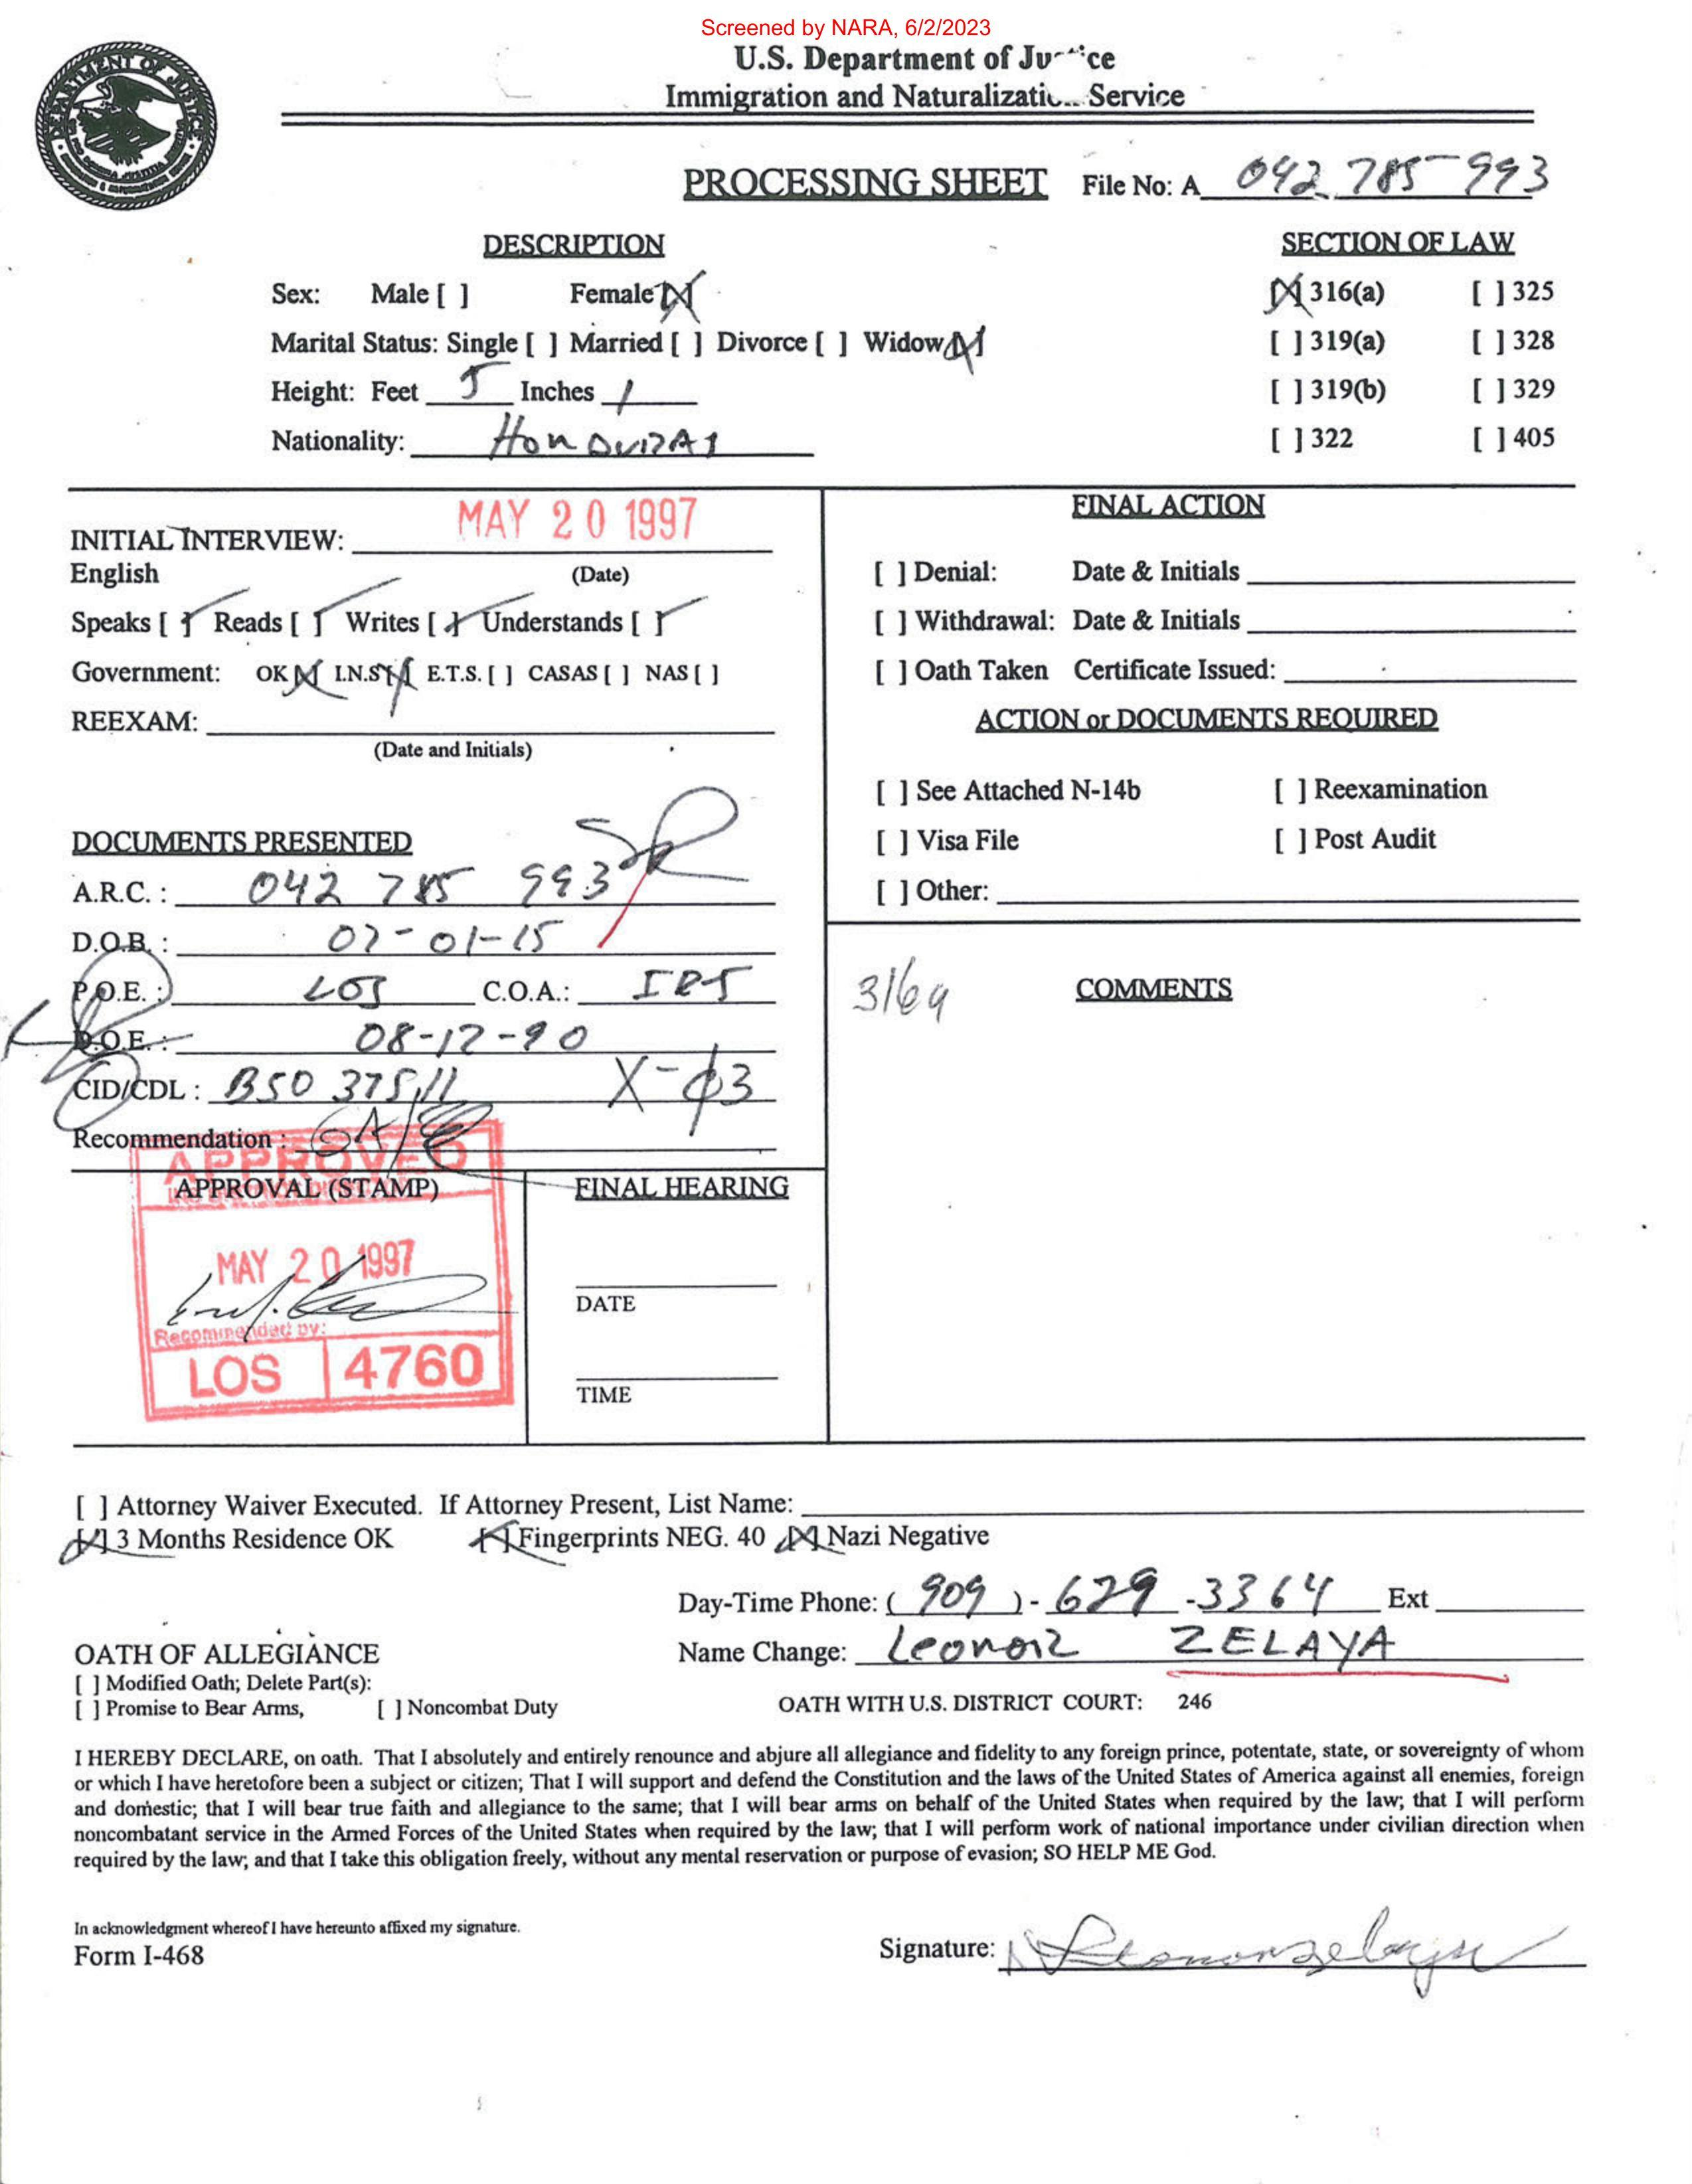 Screened by NARA, 6/2/2023
U.S. Department of Justice
Immigration and Naturalization Service
PROCESSING SHEET File No: A 042 785 993
DESCRIPTION
SECTION OF LAW
Sex: Male [ ] Female [X]
[X] 316(a) [ ] 325
Marital Status: Single [ ] Married [ ] Divorce [ ] Widow [X]
[ ] 319(a) [ ] 328
Height: Feet 5 Inches 1
[ ] 319(b) [ ] 329
Nationality: HONDURAS
[ ] 322 [ ] 405
INITIAL INTERVIEW: MAY 20 1997
English (Date)
Speaks [✓] Reads [✓] Writes [✓] Understands [✓]
Government: OK [X] I.N.S. [X] E.T.S. [ ] CASAS [ ] NAS [ ]
REEXAM:
(Date and Initials)
DOCUMENTS PRESENTED
A.R.C. : 042 785 993
D.O.B. : 07-01-15
P.O.E. : LOS C.O.A.: IR5
D.O.E. : 08-12-90
CID/CDL : B50 37511 X-03
Recommendation :
APPROVED
APPROVAL (STAMP)
MAY 20 1997
Recommended by:
LOS 4760
FINAL HEARING
DATE
TIME
FINAL ACTION
[ ] Denial: Date & Initials
[ ] Withdrawal: Date & Initials
[ ] Oath Taken Certificate Issued:
ACTION or DOCUMENTS REQUIRED
[ ] See Attached N-14b [ ] Reexamination
[ ] Visa File [ ] Post Audit
[ ] Other:
316a COMMENTS
[ ] Attorney Waiver Executed. If Attorney Present, List Name:
[X] 3 Months Residence OK [X] Fingerprints NEG. 40 [X] Nazi Negative
Day-Time Phone: ( 909 ) - 629 - 3364 Ext
OATH OF ALLEGIANCE
Name Change: Leonor ZELAYA
[ ] Modified Oath; Delete Part(s):
[ ] Promise to Bear Arms, [ ] Noncombat Duty
OATH WITH U.S. DISTRICT COURT: 246
I HEREBY DECLARE, on oath. That I absolutely and entirely renounce and abjure all allegiance and fidelity to any foreign prince, potentate, state, or sovereignty of whom
or which I have heretofore been a subject or citizen; That I will support and defend the Constitution and the laws of the United States of America against all enemies, foreign
and domestic; that I will bear true faith and allegiance to the same; that I will bear arms on behalf of the United States when required by the law; that I will perform
noncombatant service in the Armed Forces of the United States when required by the law; that I will perform work of national importance under civilian direction when
required by the law; and that I take this obligation freely, without any mental reservation or purpose of evasion; SO HELP ME God.
In acknowledgment whereof I have hereunto affixed my signature.
Form I-468
Signature: Leonor Zelaya